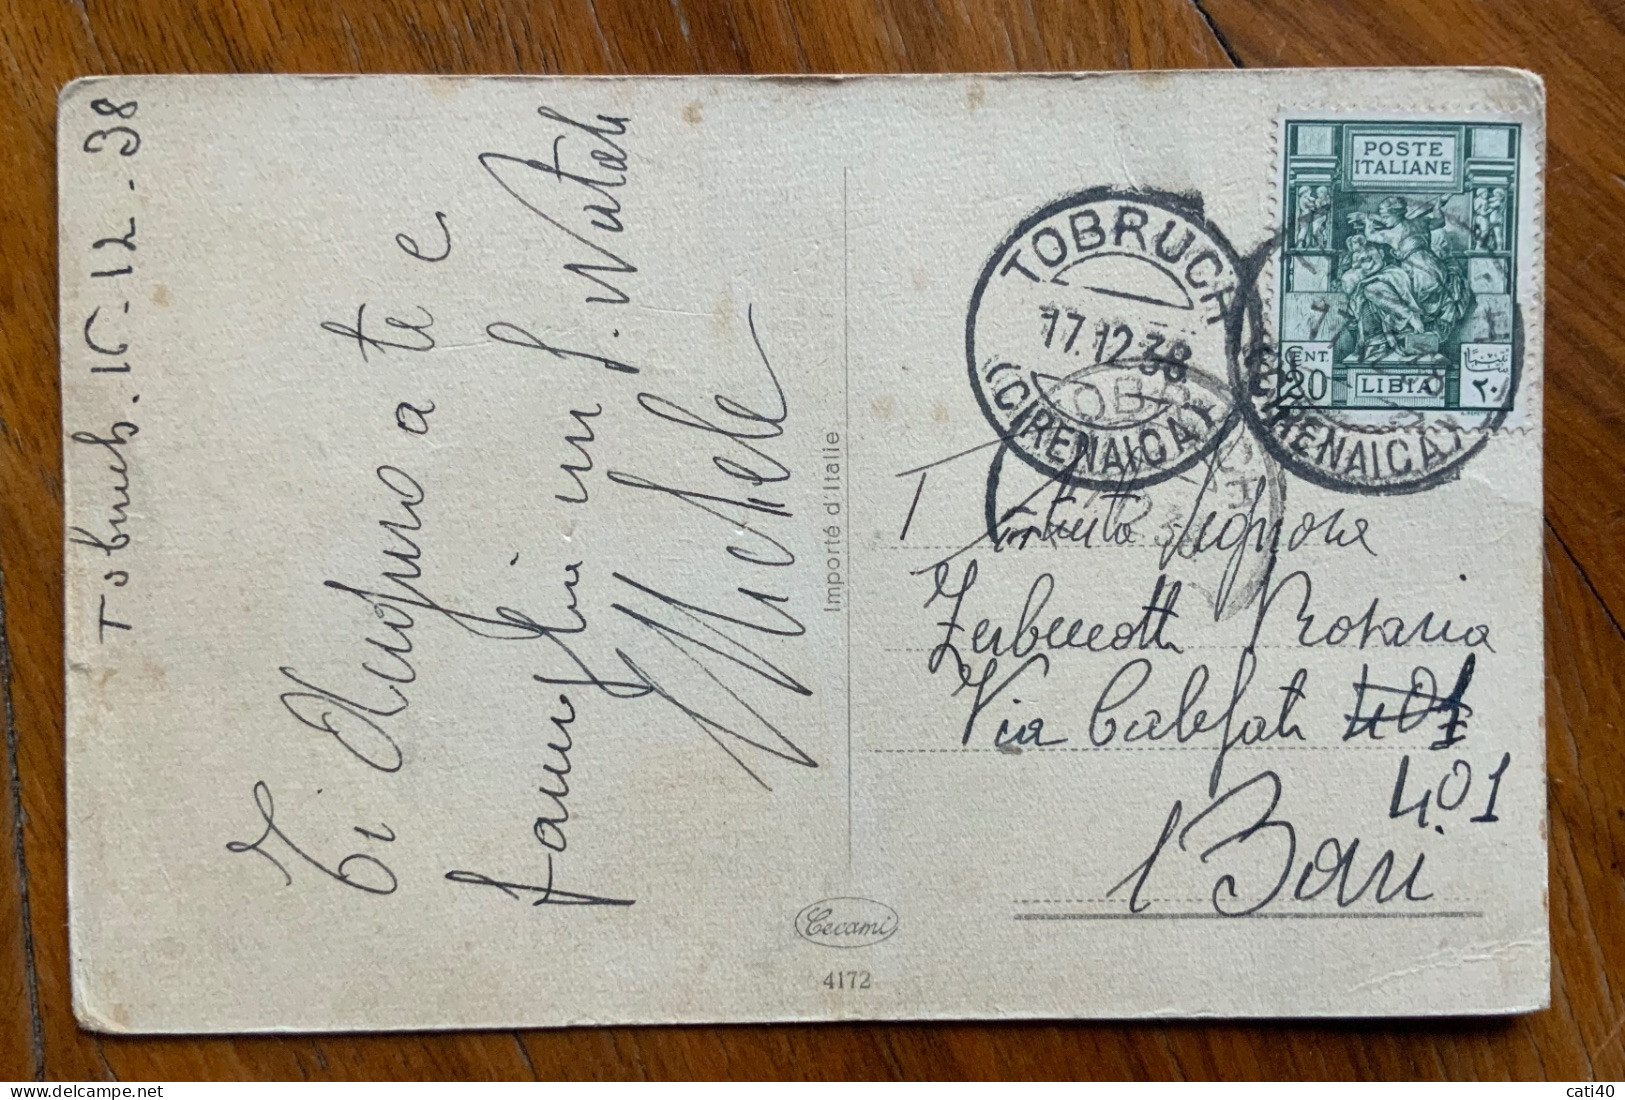 Tobruch. 16-12-38
Ti Auguro a te e
famiglia un S. Natale
Michele
Importé d'Italie
Cecami
4172
POSTE
ITALIANE
CENT.
20
LIBIA
٢٠
TOBRUCH
17.12.38
(CIRENAICA)
TOBRUCH
(CIRENAICA)
T
Signora
Rosaria
Via Calefati 401
401
Bari
cati40